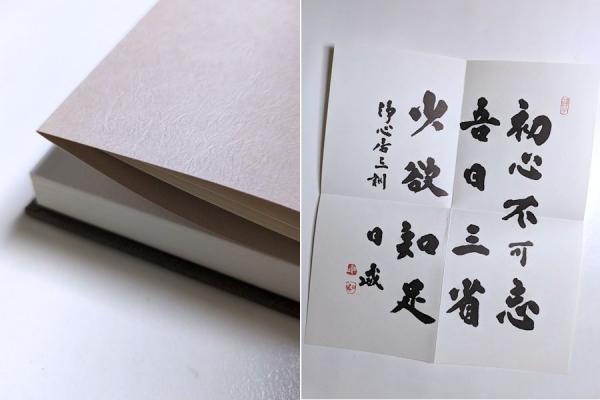 初心不可忘
吾日三省
少欲知足
淨心居三訓